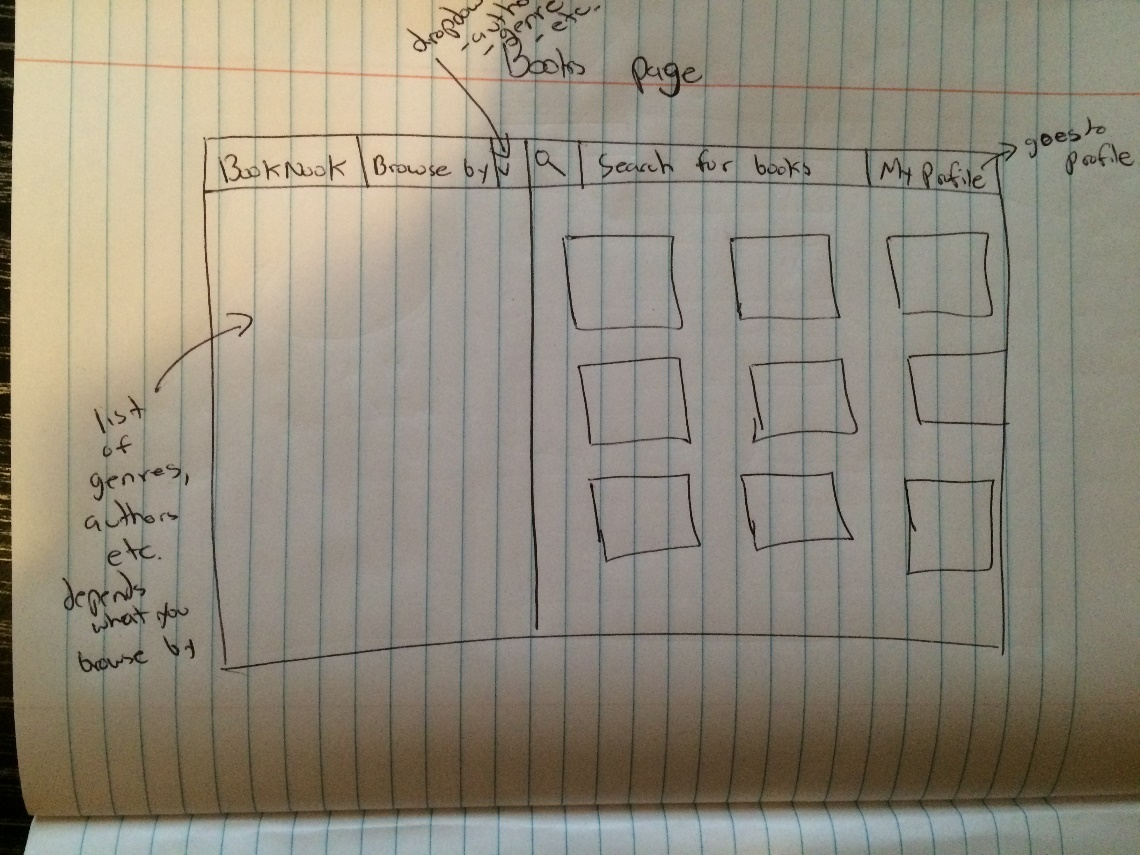 dropdow
- autho
- genre
- etc.
Books page
BookNook
Browse by
Search for books
My Profile
goes to
profile
list
of
genres,
authors
etc.
depends
what you
browse by